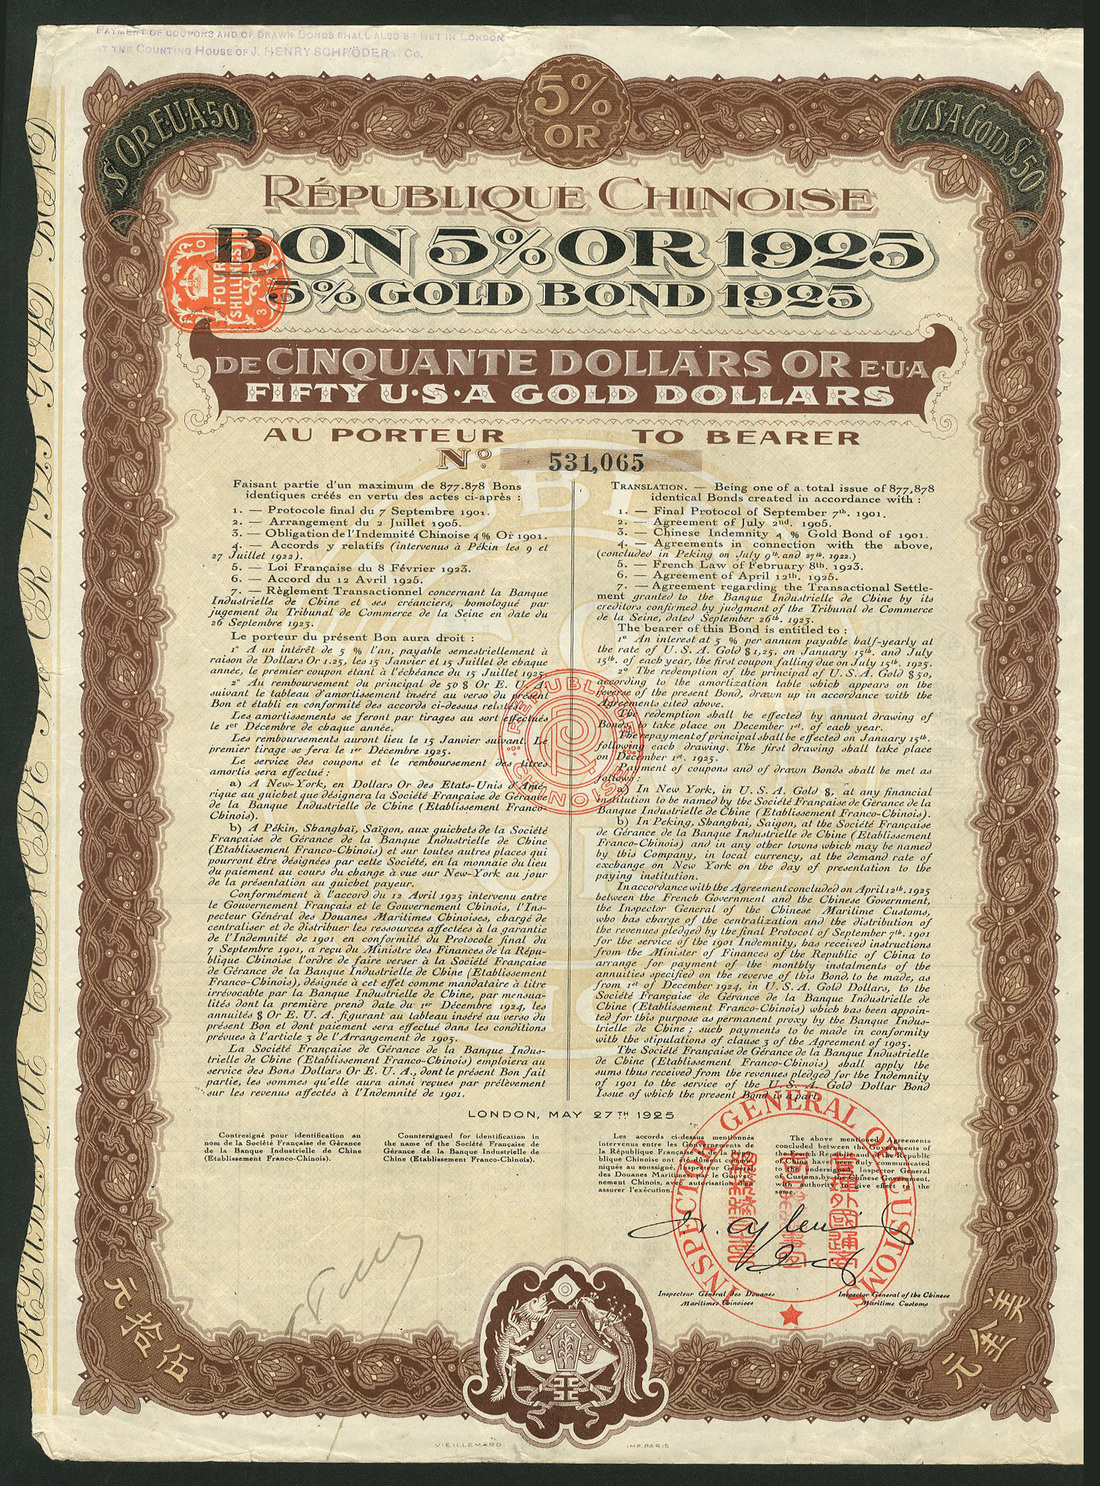 PAYMENT OF COUPONS AND OF DRAWN BONDS SHALL ALSO BE MET IN LONDON
AT THE COUNTING HOUSE OF J. HENRY SCHRÖDER & Co.
5%
OR
$ OR E.U.A. 50
U.S.A. GOLD $ 50
RÉPUBLIQUE CHINOISE
BON 5% OR 1925
5% GOLD BOND 1925
FOUR
SHILLINGS
DE CINQUANTE DOLLARS OR E·U·A
FIFTY U·S·A GOLD DOLLARS
AU PORTEUR TO BEARER
No. 531,065
Faisant partie d'un maximum de 877.878 Bons
identiques créés en vertu des actes ci-après :
1. — Protocole final du 7 Septembre 1901.
2. — Arrangement du 2 Juillet 1905.
3. — Obligation de l'Indemnité Chinoise 4 % Or 1901.
4. — Accords y relatifs (intervenus à Pékin les 9 et
27 Juillet 1922).
5. — Loi Française du 8 Février 1923.
6. — Accord du 12 Avril 1925.
7. — Règlement Transactionnel concernant la Banque
Industrielle de Chine et ses créanciers, homologué par
jugement du Tribunal de Commerce de la Seine en date du
26 Septembre 1923.
Le porteur du présent Bon aura droit :
1° A un intérêt de 5 % l'an, payable semestriellement à
raison de Dollars Or 1.25, les 15 Janvier et 15 Juillet de chaque
année, le premier coupon étant à l'échéance du 15 Juillet 1925.
2° Au remboursement du principal de 50 $ Or E. U. A.
suivant le tableau d'amortissement inséré au verso du présent
Bon et établi en conformité des accords ci-dessus relatés.
Les amortissements se feront par tirages au sort effectués
le 1er Décembre de chaque année.
Les remboursements auront lieu le 15 Janvier suivant. Le
premier tirage se fera le 1er Décembre 1925.
Le service des coupons et le remboursement des titres
amortis sera effectué :
a) A New-York, en Dollars Or des Etats-Unis d'Amé-
rique au guichet que désignera la Société Française de Gérance
de la Banque Industrielle de Chine (Etablissement Franco-
Chinois).
b) A Pékin, Shanghaï, Saïgon, aux guichets de la Société
Française de Gérance de la Banque Industrielle de Chine
(Etablissement Franco-Chinois) et sur toutes autres places qui
pourront être désignées par cette Société, en la monnaie du lieu
du paiement au cours du change à vue sur New-York au jour
de la présentation au guichet payeur.
Conformément à l'accord du 12 Avril 1925 intervenu entre
le Gouvernement Français et le Gouvernement Chinois, l'Ins-
pecteur Général des Douanes Maritimes Chinoises, chargé de
centraliser et de distribuer les ressources affectées à la garantie
de l'Indemnité de 1901 en conformité du Protocole final du
7 Septembre 1901, a reçu du Ministre des Finances de la Répu-
blique Chinoise l'ordre de faire verser à la Société Française
de Gérance de la Banque Industrielle de Chine (Etablissement
Franco-Chinois), désignée à cet effet comme mandataire à titre
irrévocable par la Banque Industrielle de Chine, par mensua-
lités dont la première prend date du 1er Décembre 1924, les
annuités $ Or E. U. A. figurant au tableau inséré au verso du
présent Bon et dont paiement sera effectué dans les conditions
prévues à l'article 3 de l'Arrangement de 1905.
La Société Française de Gérance de la Banque Indus-
trielle de Chine (Etablissement Franco-Chinois) emploiera au
service des Bons Dollars Or E. U. A., dont le présent Bon fait
partie, les sommes qu'elle aura ainsi reçues par prélèvement
sur les revenus affectés à l'Indemnité de 1901.
TRANSLATION. — Being one of a total issue of 877,878
identical Bonds created in accordance with :
1. — Final Protocol of September 7th. 1901.
2. — Agreement of July 2nd. 1905.
3. — Chinese Indemnity 4 % Gold Bond of 1901.
4. — Agreements in connection with the above,
(concluded in Peking on July 9th. and 27th. 1922.)
5. — French Law of February 8th. 1923.
6. — Agreement of April 12th. 1925.
7. — Agreement regarding the Transactional Settle-
ment granted to the Banque Industrielle de Chine by its
creditors confirmed by judgment of the Tribunal de Commerce
de la Seine, dated September 26th. 1923.
The bearer of this Bond is entitled to :
1° An interest at 5 % per annum payable half-yearly at
the rate of U. S. A. Gold $1,25, on January 15th. and July
15th. of each year, the first coupon falling due on July 15th. 1925.
2° The redemption of the principal of U. S. A. Gold $50,
according to the amortization table which appears on the
reverse of the present Bond, drawn up in accordance with the
Agreements cited above.
The redemption shall be effected by annual drawing of
Bonds, to take place on December 1st. of each year.
The repayment of principal shall be effected on January 15th.
following each drawing. The first drawing shall take place
on December 1st. 1925.
Payment of coupons and of drawn Bonds shall be met as
follows :
a) In New York, in U. S. A. Gold $, at any financial
institution to be named by the Société Française de Gérance de la
Banque Industrielle de Chine (Etablissement Franco-Chinois).
b) In Peking, Shanghaï, Saigon, at the Société Française
de Gérance de la Banque Industrielle de Chine (Etablissement
Franco-Chinois) and in any other towns which may be named
by this Company, in local currency, at the demand rate of
exchange on New York on the day of presentation to the
paying institution.
In accordance with the Agreement concluded on April 12th. 1925
between the French Government and the Chinese Government,
the Inspector General of the Chinese Maritime Customs,
who has charge of the centralization and the distribution of
the revenues pledged by the final Protocol of September 7th. 1901
for the service of the 1901 Indemnity, has received instructions
from the Minister of Finances of the Republic of China to
arrange for payment of the monthly instalments of the
annuities specified on the reverse of this Bond, to be made, as
from 1st of December 1924, in U. S. A. Gold Dollars, to the
Société Française de Gérance de la Banque Industrielle de
Chine (Etablissement Franco-Chinois) which has been appoin-
ted for this purpose as permanent proxy by the Banque Indus-
trielle de Chine ; such payments to be made in conformity
with the stipulations of clause 3 of the Agreement of 1905.
The Société Française de Gérance de la Banque Industrielle
de Chine (Etablissement Franco-Chinois) shall apply the
sums thus received from the revenues pledged for the Indemnity
of 1901 to the service of the U. S. A. Gold Dollar Bond
Issue of which the present Bond is a part.
RÉPUBLIQUE CHINOISE
LONDON, MAY 27TH 1925
Contresigné pour identification au
nom de la Société Française de Gérance
de la Banque Industrielle de Chine
(Etablissement Franco-Chinois).
Countersigned for identification in
the name of the Société Française de
Gérance de la Banque Industrielle de
Chine (Etablissement Franco-Chinois).
Les accords ci-dessus mentionnés
intervenus entre les Gouvernements de
la République Française et de la Répu-
blique Chinoise ont été dûment commu-
niqués au soussigné, Inspecteur Général
des Douanes Maritimes par le Gouver-
nement Chinois, avec autorisation d'en
assurer l'exécution.
The above mentioned Agreements
concluded between the Governments of
the French Republic and of the Republic
of China have been duly communicated
to the undersigned Inspector General
of Customs, by the Chinese Government,
with authority to give effect to the
same.
INSPECTOR GENERAL OF CUSTOMS
Inspecteur Général des Douanes
Maritimes Chinoises
Inspector General of the Chinese
Maritime Customs
伍拾元
美金元
VIEILLEMARD IMP. PARIS